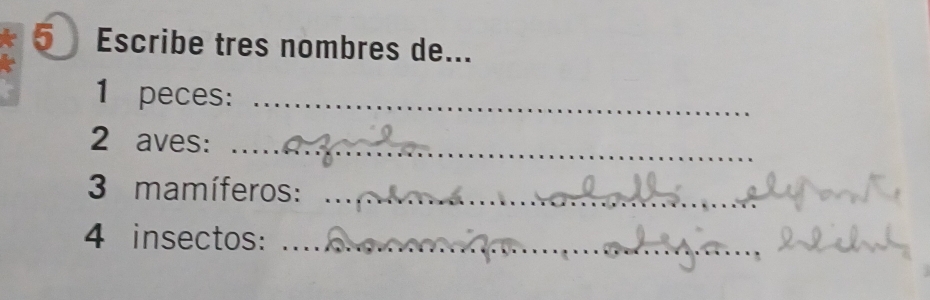 5 Escribe tres nombres de...
1 peces: ....................
2 aves: aguila
3 mamíferos: , caballo, elefante
4 insectos: hormiga, abeja,